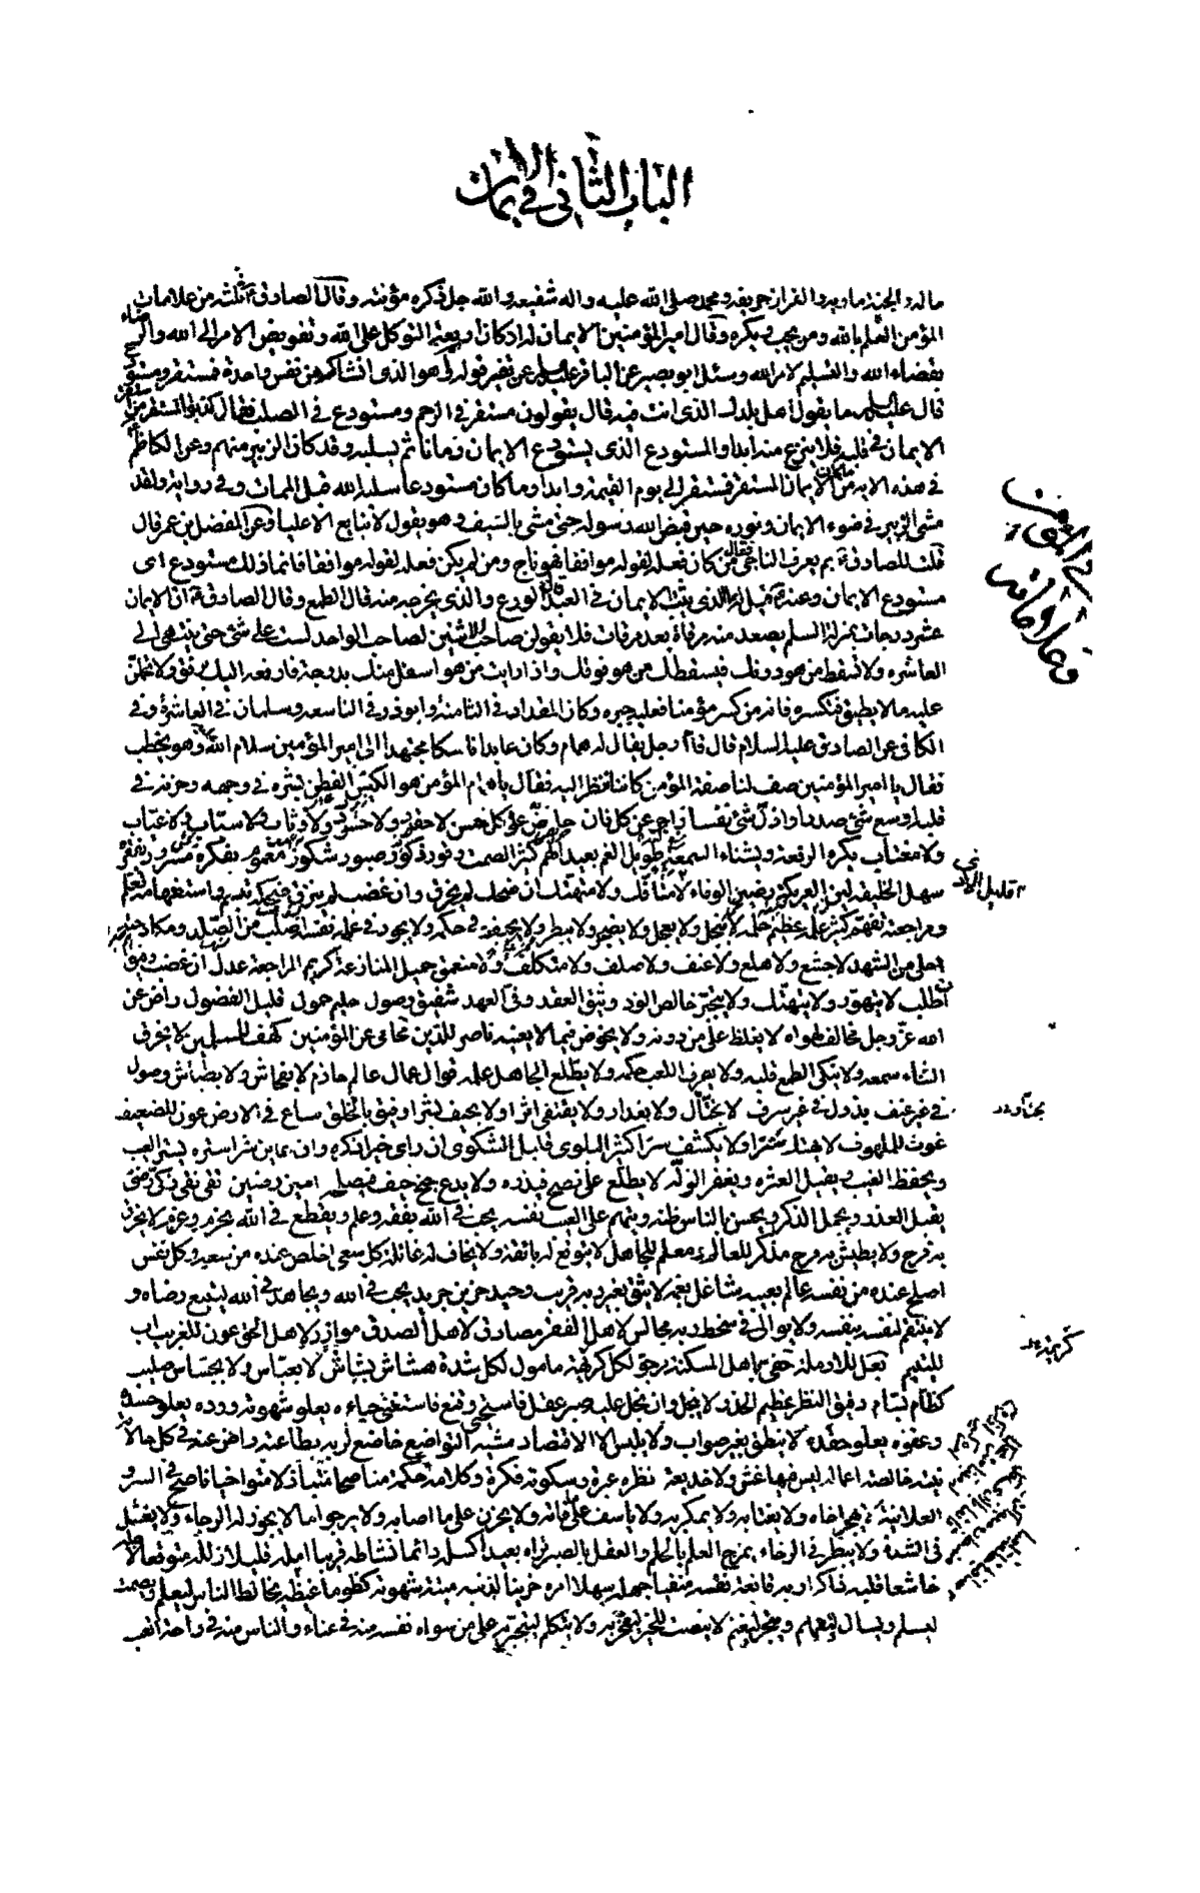 الباب الثانى فى الايمان
ماله والجنة ماويه والقران حريفه ومحمد صلى الله عليه واله شفيعه والله جل ذكره مؤنسه وقال الصادق ثلثة من علامات
المؤمن العلم بالله ومن يحب و يكره وقال امير المؤمنين الايمان له اركان اربعة التوكل على الله وتفويض الامر الى الله والرضاء
بقضاء الله والتسليم لامر الله وسئل ابو بصير عن الباقر عليه السلم عن تفسير قوله تع هو الذى انشاكم من نفس واحدة فمستقر ومستودع
قال عليه السلم ما يقول اهل بلدك الذى انت فيه قال يقولون مستقر فى الرحم ومستودع فى الصلب فقال كذبوا المستقر من استقر
الايمان فى قلبه فلا ينزع منه ابدا والمستودع الذى يستودع الايمان زمانا ثم يسلبه وقد كان الزبير منهم وعن الكاظم
فى هذه الاية ما كان من الايمان المستقر فمستقر الى يوم القيمة وابدا وما كان مستودعا سلبه الله قبل الممات وفى رواية ولقد
مشى الزبير فى ضوء الايمان ونوره حين قبض الله رسوله حتى مشى بالسيف وهو يقول لا نبايع الا عليا وعن المفضل بن عمر قال
قلت للصادق بم يعرف الناجى فقال من كان فعله لقوله موافقا فهو ناج ومن لم يكن فعله لقوله موافقا فانما ذلك مستودع اى
مستودع الايمان وعنه قيل له ما الذى يثبت الايمان فى العبد قال الورع والذى يخرجه منه قال الطمع وقال الصادق ان الايمان
عشر درجات بمنزلة السلم يصعد منه مرقاة بعد مرقات فلا يقولن صاحب الاثنين لصاحب الواحد لست على شئ حتى ينتهى الى
العاشره ولا تسقط من هو دونك فيسقطك من هو فوقك واذا رايت من هو اسفل منك بدرجة فارفعه اليك برفق ولا تحملن
عليه ما لا يطيق فتكسره فانه من كسر مؤمنا فعليه جبره وكان المقداد فى الثامنة وابو ذر فى التاسعه وسلمان فى العاشرة وفى
الكافى عن الصادق عليه السلام قال قام رجل يقال له همام وكان عابدا ناسكا مجتهدا الى امير المؤمنين سلام الله عليه وهو يخطب
فقال يا امير المؤمنين صف لنا صفة المؤمن كاننا ننظر اليه فقال يا همام المؤمن هو الكيس الفطن بشره فى وجهه وحزنه فى
قلبه اوسع شئ صدرا واذل شئ نفسا زاجر عن كل فان حاض على كل حسن لا حقود ولا حسود ولا وثاب ولا سباب ولا عياب
ولا مغتاب يكره الرفعة ويشناء السمعة طويل الغم بعيد الهم كثير الصمت وقور ذكور صبور شكور مغموم بفكره مسرور بفقره
سهل الخليقه لين العريكة رصين الوفاء لا متافك ولا متهتك ان ضحك لم يخرق وان غضب لم ينزق ضحكه تبسم واستفهامه تعلم
ومراجعته تفهم كثير علمه عظيم حلمه لا يبخل ولا يعجل ولا يضجر ولا يبطر ولا يحيف فى حكمه ولا يجور فى علمه نفسه اصلب من الصلد ومكادحته
احلى من الشهد لا جشع ولا هلع ولا عنف ولا صلف ولا متكلف ولا متعمق جميل المنازعة كريم المراجعة عدل ان غضب رفيق
ان طلب لا يتهور ولا يتهتك ولا يتجبر خالص الود وثيق العقد وفى العهد شفيق وصول حليم حمول قليل الفضول راض عن
الله عز وجل مخالف لهواه لا يغلظ على من دونه ولا يخوض فيما لا يعنيه ناصر للدين محامى عن المؤمنين كهف للمسلمين لا يخرق
الثناء سمعه ولا ينكى الطمع قلبه ولا يصرف اللعب حكمه ولا يطلع الجاهل علمه قوال عمال عالم حازم لا بفحاش ولا بطياش وصول
فى غير عنف بذول فى غير سرف لا بختال ولا بغدار ولا يقتفى اثرا ولا يحيف بشرا رفيق بالخلق ساع فى الارض عون للضعيف
غوث للملهوف لا يهتك سترا ولا يكشف سرا كثير البلوى قليل الشكوى ان راى خيرا ذكره وان عاين شرا ستره يستر العيب
ويحفظ الغيب ويقيل العثره ويغفر الزلة لا يطلع على نصح فيذره ولا يدع جنح حيف فيصلحه امين رصين تقى نقى زكى رضى
يقبل العذر ويجمل الذكر ويحسن بالناس ظنه ويتهم على العيب نفسه يحب فى الله بفقه وعلم ويقطع فى الله بحزم وعزم لا يخرق
به فرح ولا يطيش به مرح مذكر للعالم معلم للجاهل لا يتوقع له بائقة ولا يخاف له غائلة كل سعى اخلص عنده من سعيه وكل نفس
اصلح عنده من نفسه عالم بعيبه شاغل بغمه لا يثق بغير ربه قريب وحيد حزين جريد يحب فى الله ويجاهد فى الله ليتبع رضاه و
لا ينتقم لنفسه بنفسه ولا يوالى فى سخط ربه مجالس لاهل الفقر مصادق لاهل الصدق موازر لاهل الحق عون للغريب اب
لليتيم بعل للارملة حفى باهل المسكنة مرجو لكل كريهة مامول لكل شدة هشاش بشاش لا بعباس ولا بجساس صليب
كظام بسام دقيق النظر عظيم الحذر لا يبخل وان بخل عليه صبر عقل فاستحيى وقنع فاستغنى حياءه يعلو شهوته ووده يعلو حسده
وعفوه يعلو حقده لا ينطق بغير صواب ولا يلبس الا الاقتصاد مشيه التواضع خاضع لربه بطاعته راض عنه فى كل حالاته
نيته خالصة اعماله ليس فيها غش ولا خديعة نظره عبرة وسكوته فكرة وكلامه حكمة مناصحا متباذلا متواخيا ناصح فى السر و
العلانية لا يهجر اخاه ولا يغتابه ولا يمكر به ولا ياسف على ما فاته ولا يحزن على ما اصابه ولا يرجو ما لا يجوز له الرجاء ولا يفشل
فى الشدة ولا يبطر فى الرخاء يمزج العلم بالحلم والعقل بالصبر تراه بعيدا كسله دائما نشاطه قريبا امله قليلا زلله متوقعا لاجله
خاشعا قلبه ذاكرا ربه قانعة نفسه منفيا جهله سهلا امره حزينا لذنبه ميتة شهوته كظوما غيظه مخالطا الناس ليعلم ويصمت
ليسلم ويسال ليفهم ويتجر ليغنم لا ينصت للخبر ليفجر به ولا يتكلم ليتجبر به على من سواه نفسه منه فى عناء والناس منه فى راحة اتعب
قليل الاذى